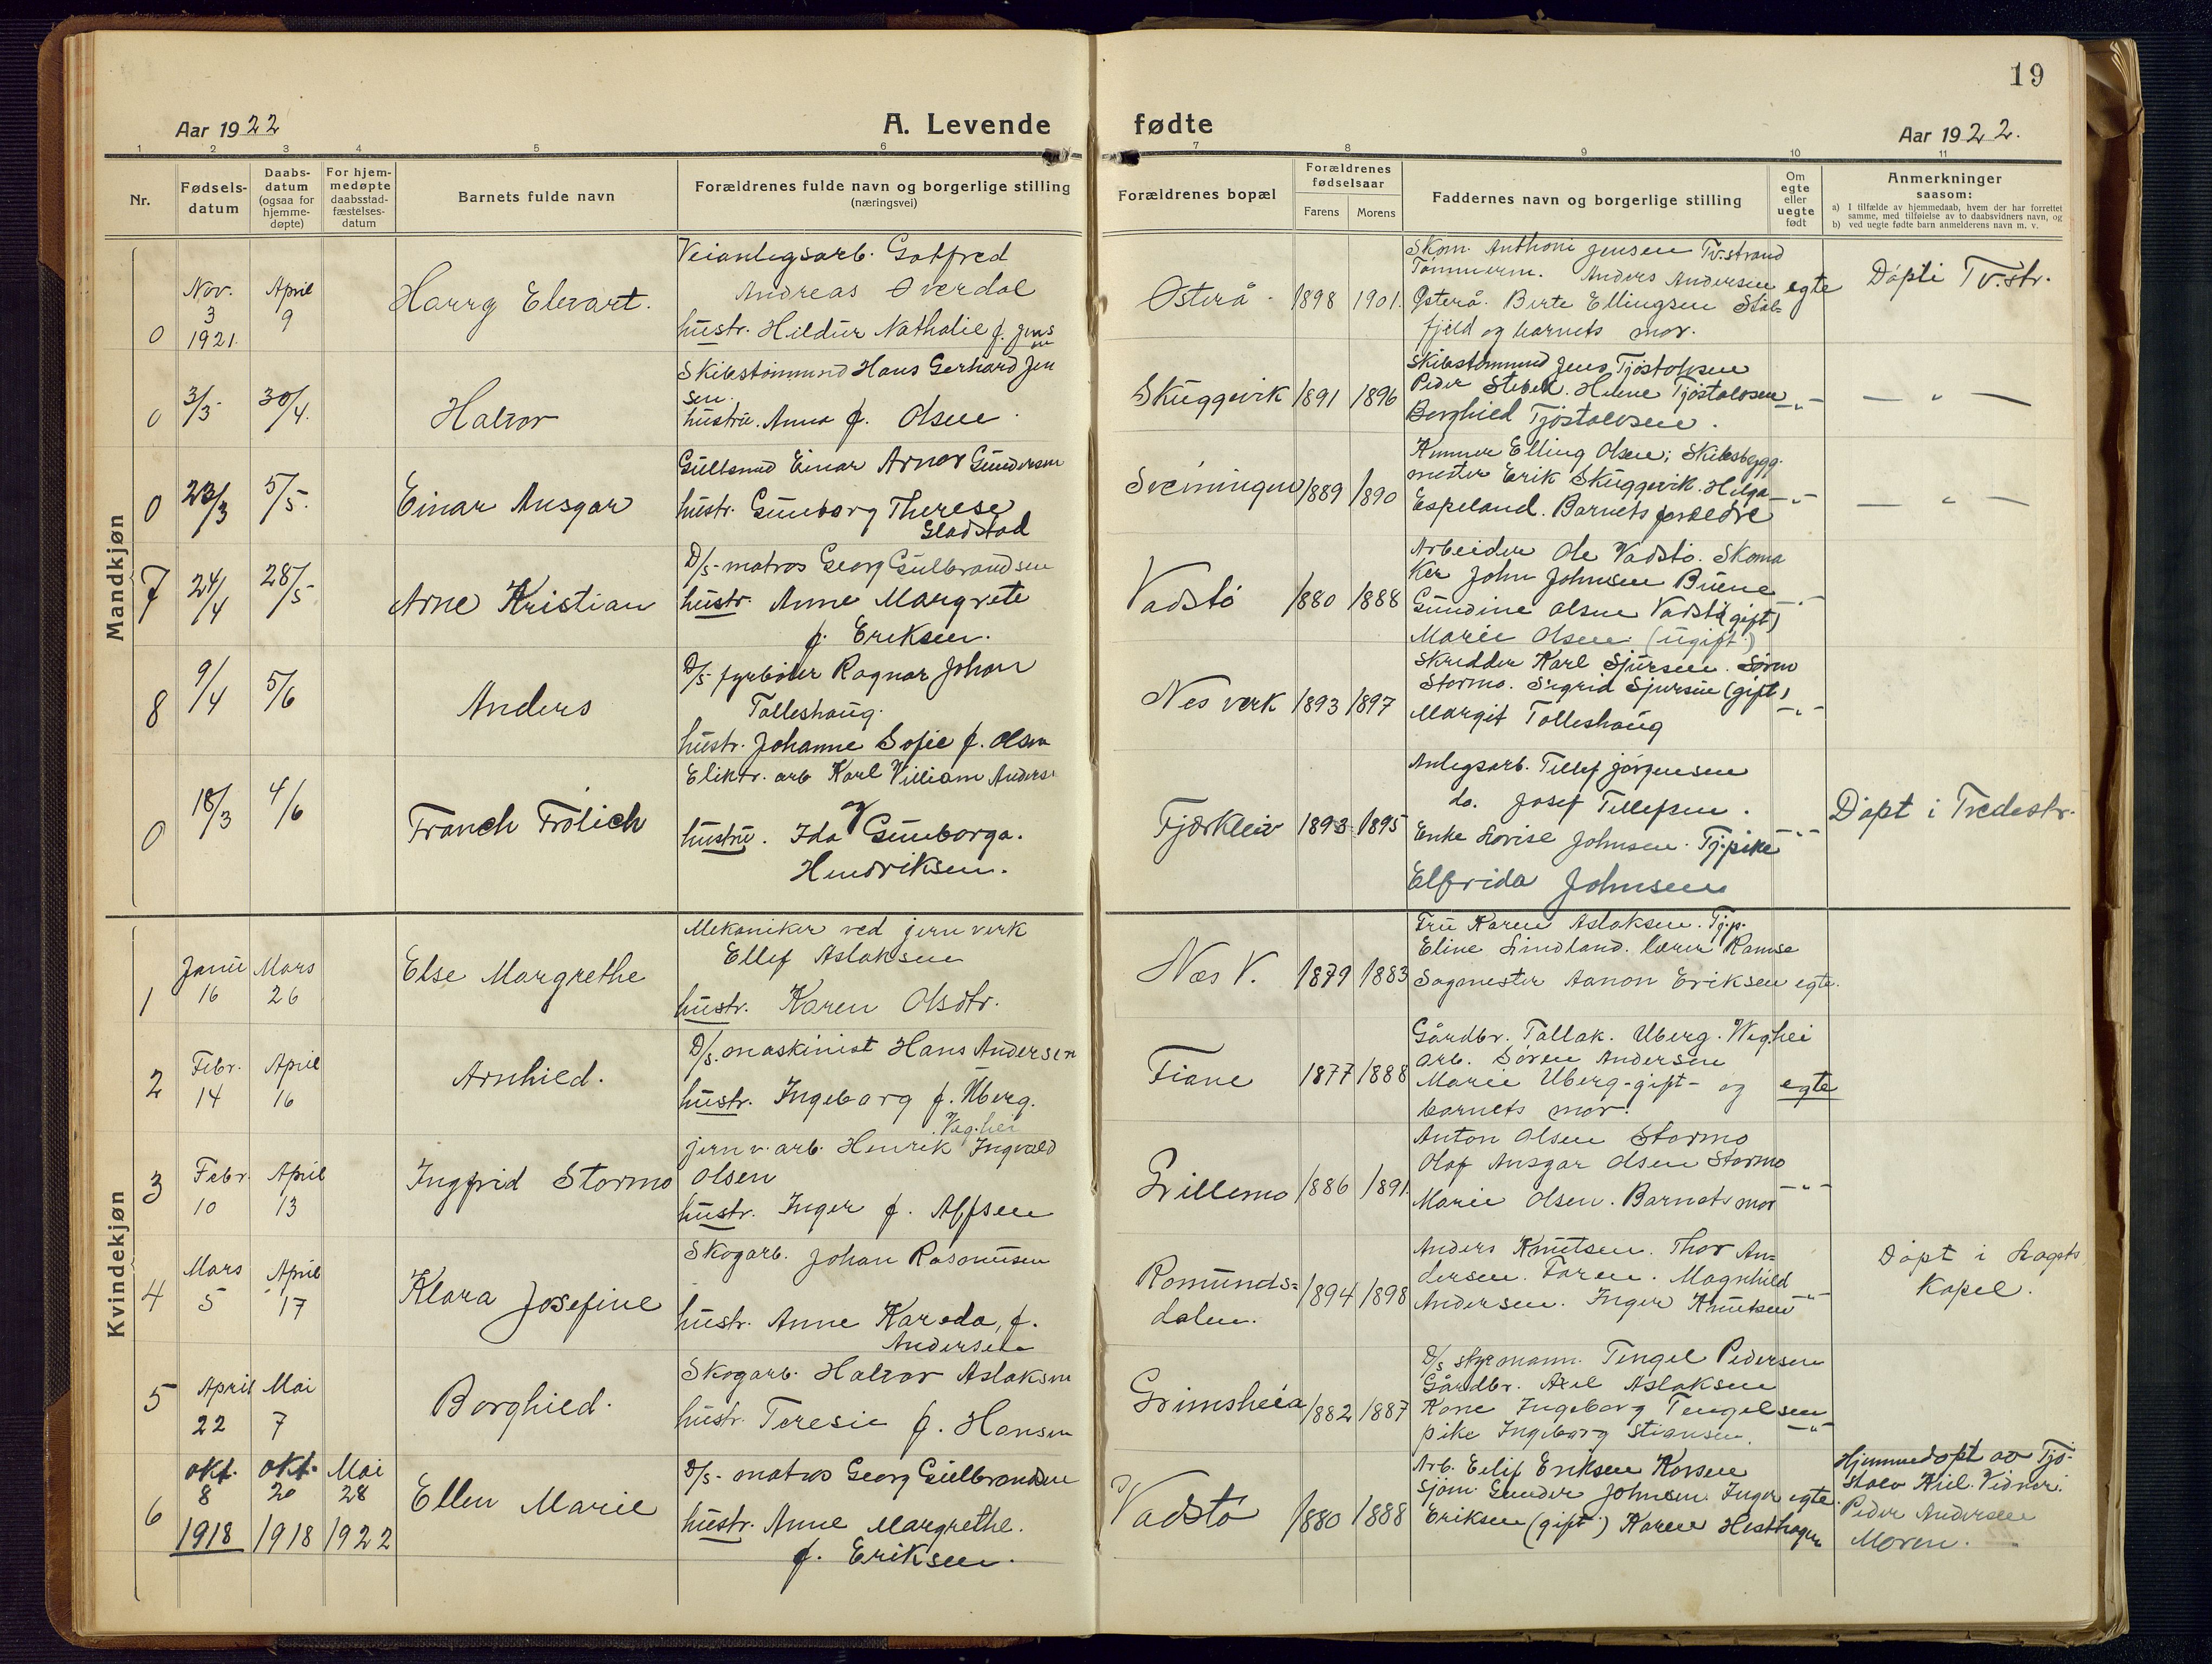 19
Aar 1922
A. Levende fødte
Aar 1922.
1 2 3 4 5 6 7 8 9 10 11
Nr.
Fødsels-
datum
Daabs-
datum
(ogsaa for
hjemme-
døpte)
For hjem-
medøpte
daabsstad-
fæstelses-
datum
Barnets fulde navn
Forældrenes fulde navn og borgerlige stilling
(næringsvei)
Forældrenes bopæl
Forældrenes
fødselsaar
Farens Morens
Faddernes navn og borgerlige stilling
Om
egte
eller
uegte
født
Anmerkninger
saasom:
a) I tilfælde av hjemmedaab, hvem der har forrettet
samme, med tilføielse av to daabsvidners navn, og
b) ved uegte fødte barn anmelderens navn m. v.
Mandkjøn
0
Nov.
3
1921.
April
9
Harry Edvart.
Veianlegsarb. Gotfred
Andreas Overdal
hustr. Hildur Nathalie f. Jens
en
Østerå.
1898 1901.
Skom. Anthoni Jensen Tv.strand
Tømmerm. Anders Andersen
Østerå. Berte Ellingsen Stol-
fjeld og barnets mor.
egte
Døpt i Tv.str.
0
3/3
30/4.
Halvor
Skibstømmerm Hans Gerhard Jen
sen.
hustru. Anna f. Olsen.
Skuggevik
1891 1896
Skibstømmerm Jens Tjøstolvsen
Peder Helene Tjøstolvsen
Borghild Tjøstolvsen.
— " —
— " —
0
23/3
5/5.
Einar Ansgar
Gullsmed Einar Arnor Gundersen
hustr. Gunborg Therese
Gladstad
Sveiningen
1889 1890
Elling Olsen; Skibsbygg-
mester Erik Skuggevik. Helga
Espeland. Barnets foreldre
— " —
— " —
7
24/4
28/5
Arne Kristian
D/s- matros Georg Gulbrandsen
hustr. Anne Margrete
f. Eriksen.
Vadstø
1880 1888
Arbeider Ole Vadstø. Skoma
ker John Johnsen Buene
Gundine Olsen Vadstø (gift)
Marie Olsen (ugift.)
— " —
8
9/4
5/6
Anders
D/s- fyrbøter Ragnar Johan
Tolleshaug.
hustr. Johanne Sofie f. Olsen
Nes verk
1893 1897
Skredder Karl Sjursen. Søren
Stormo. Sigrid Sjursen (gift)
Margit Tolleshaug
— " —
0
18/3
4/6
Franch Frölich
Elektr. arb Karl Villiam Anders.
og
hustru. Ida Gunborga.
Hendriksen.
Fjærkleiv
1893 1895
Anlegsarb. Tellef Jörgensen
do. Josef Tellefsen.
Enke Lovise Johnsen. Tj.pike
Elfrida Johnsen
— " —
Døpt i Tvedestr.
Kvindekjøn
1
Janu
16
Mars
26
Else Margrethe
Mekaniker ved jernverk
Ellef Aslaksen
hustr. Karen Olsdtr.
Næs V.
1879 1883
Fru Karen Aslaksen. Tj.p.
Eline Lindland. Lærer Ramse
Sagmester Aanon Eriksen
egte.
2
Febr.
14
April
16
Arnhild.
D/s. maskinist Hans Andersen
hustr. Ingeborg f. Uberg.
Veg.hei
Fiane
1877 1888
Gårdbr. Tallak. Uberg. Weg.hei
arb. Søren Andersen
Marie Uberg - gift - og
barnets mor.
egte
3
Febr.
10
April
13
Ingfrid Stormo
jernv. arb. Henrik Ingvald
Olsen
hustr. Inger f. Alfsen
Lillemo
1886 1891
Anton Olsen Stormo
Olaf Ansgar Olsen Stormo
Marie Olsen. Barnets mor
— " —
4
Mars
5
April
17
Klara Josefine
Skogarb. Johan Rasmussen
hustr. Anne Kareda, f.
Andersen
Romunds=
dalen.
1894 1898
Anders Knutsen. Thor An=
dersen. Toren. Magnhild
Andersen. Inger Knutsen
— " —
Døpt i Laget's
Kapel.
5
April
22
Mai
7
Borghild.
Skogarb. Halvor Aslaksen
hustr. Teresie f. Hansen
Grimsheia
1882 1887
D/s styrmann. Tengel Pedersen
Gårdbr. Axel Aslaksen
Kone Ingeborg Tengelsen
pike Ingeborg Stiansen.
— " —
6
okt.
8
1918
okt.
20
1918
Mai
28
1922
Ellen Marie
D/s- matros Georg Gulbrandsen
hustr. Anne Margrethe.
f. Eriksen.
Vadstø
1880 1888
Arb. Eilif Eriksen
Sjöm. Gunder Johnsen. Inger
Eriksen (gift.) Karen Hesthagen
egte.
Hjemmedøpt av Tjö-
stolv Kiil. Vidner:
Peder Andersen
Moren.